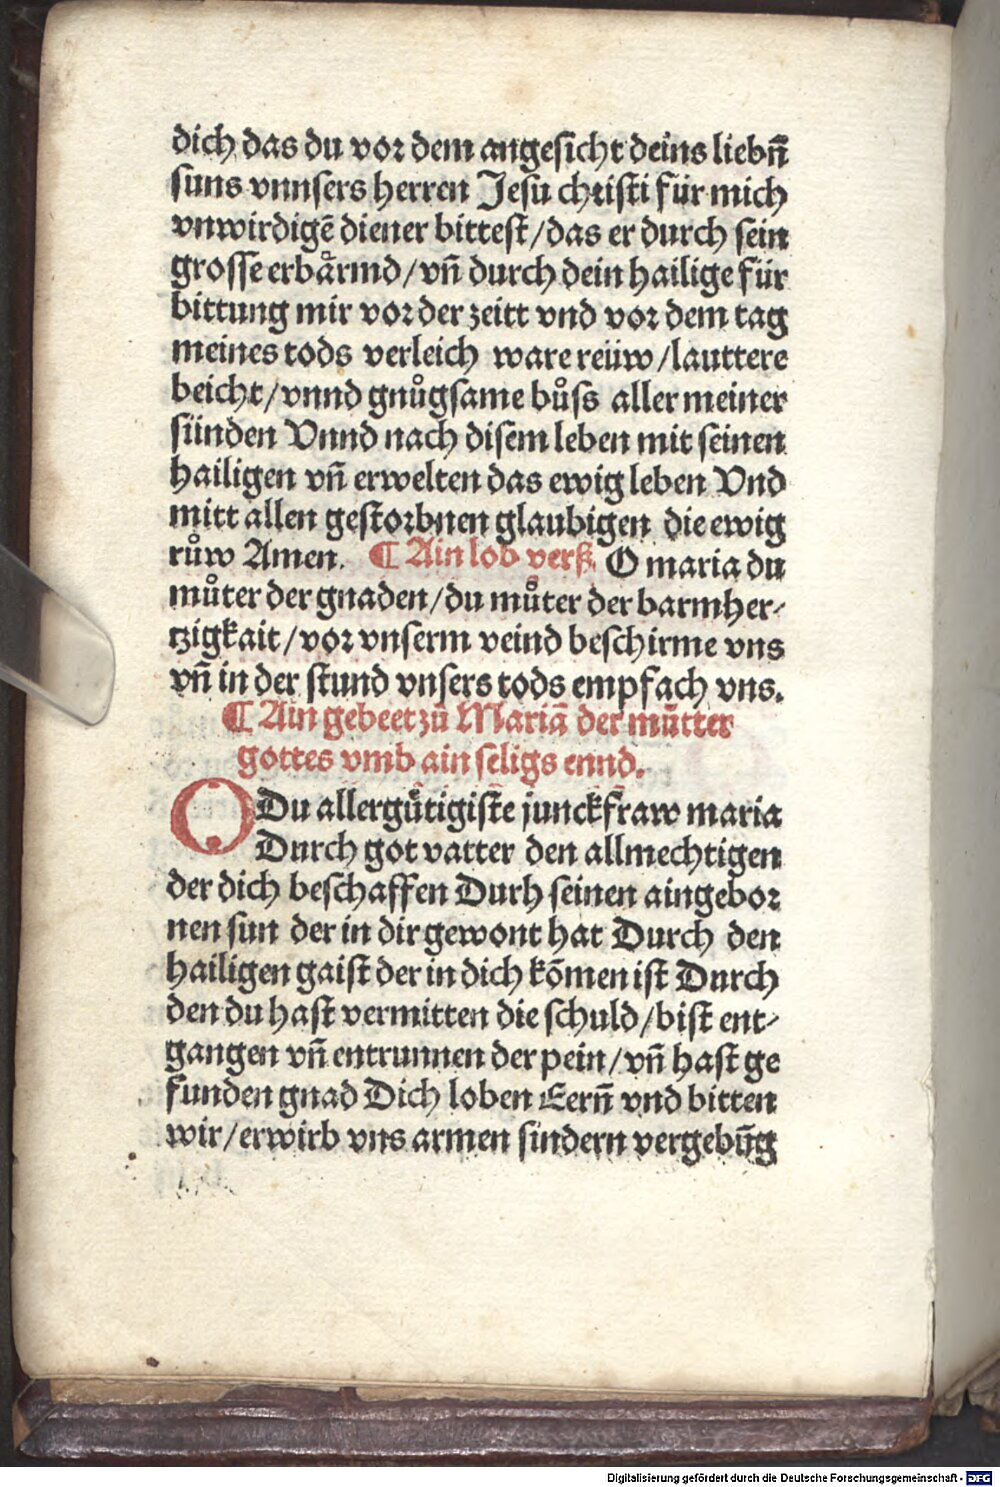 dich das du vor dem angesicht deins liebn̄
suns vnnsers herren Jesu christi für mich
vnwirdigē diener bittest/das er durch sein
grosse erbärmd/vn̄ durch dein hailige für
bittung mir vor der zeitt vnd vor dem tag
meines tods verleich ware reüw/lauttere
beicht/vnnd gnůgsame bůſs aller meiner
sünden Vnnd nach disem leben mit seinen
hailigen vn̄ erwelten das ewig leben Vnd
mitt allen gestorbnen glaubigen die ewig
růw Amen. ¶ Ain lob verß. O maria du
můter der gnaden/du můter der barmher⸗
tzigkait/vor vnserm veind beschirme vns
vn̄ in der stund vnsers tods empfach vns.
¶ Ain gebeet zů Mariā der můtter
gottes vmb ain seligs ennd.
O Du allergütigiste junckfraw maria
Durch got vatter den allmechtigen
der dich beschaffen Durh seinen aingebor
nen sun der in dir gewont hat Durch den
hailigen gaist der in dich kōmen ist Durch
den du hast vermitten die schuld/bist ent⸗
gangen vn̄ entrunnen der pein/vn̄ hast ge
funden gnad Dich loben Eern̄ vnd bitten
wir/erwirb vns armen sindern vergebūg
Digitalisierung gefördert durch die Deutsche Forschungsgemeinschaft - DFG